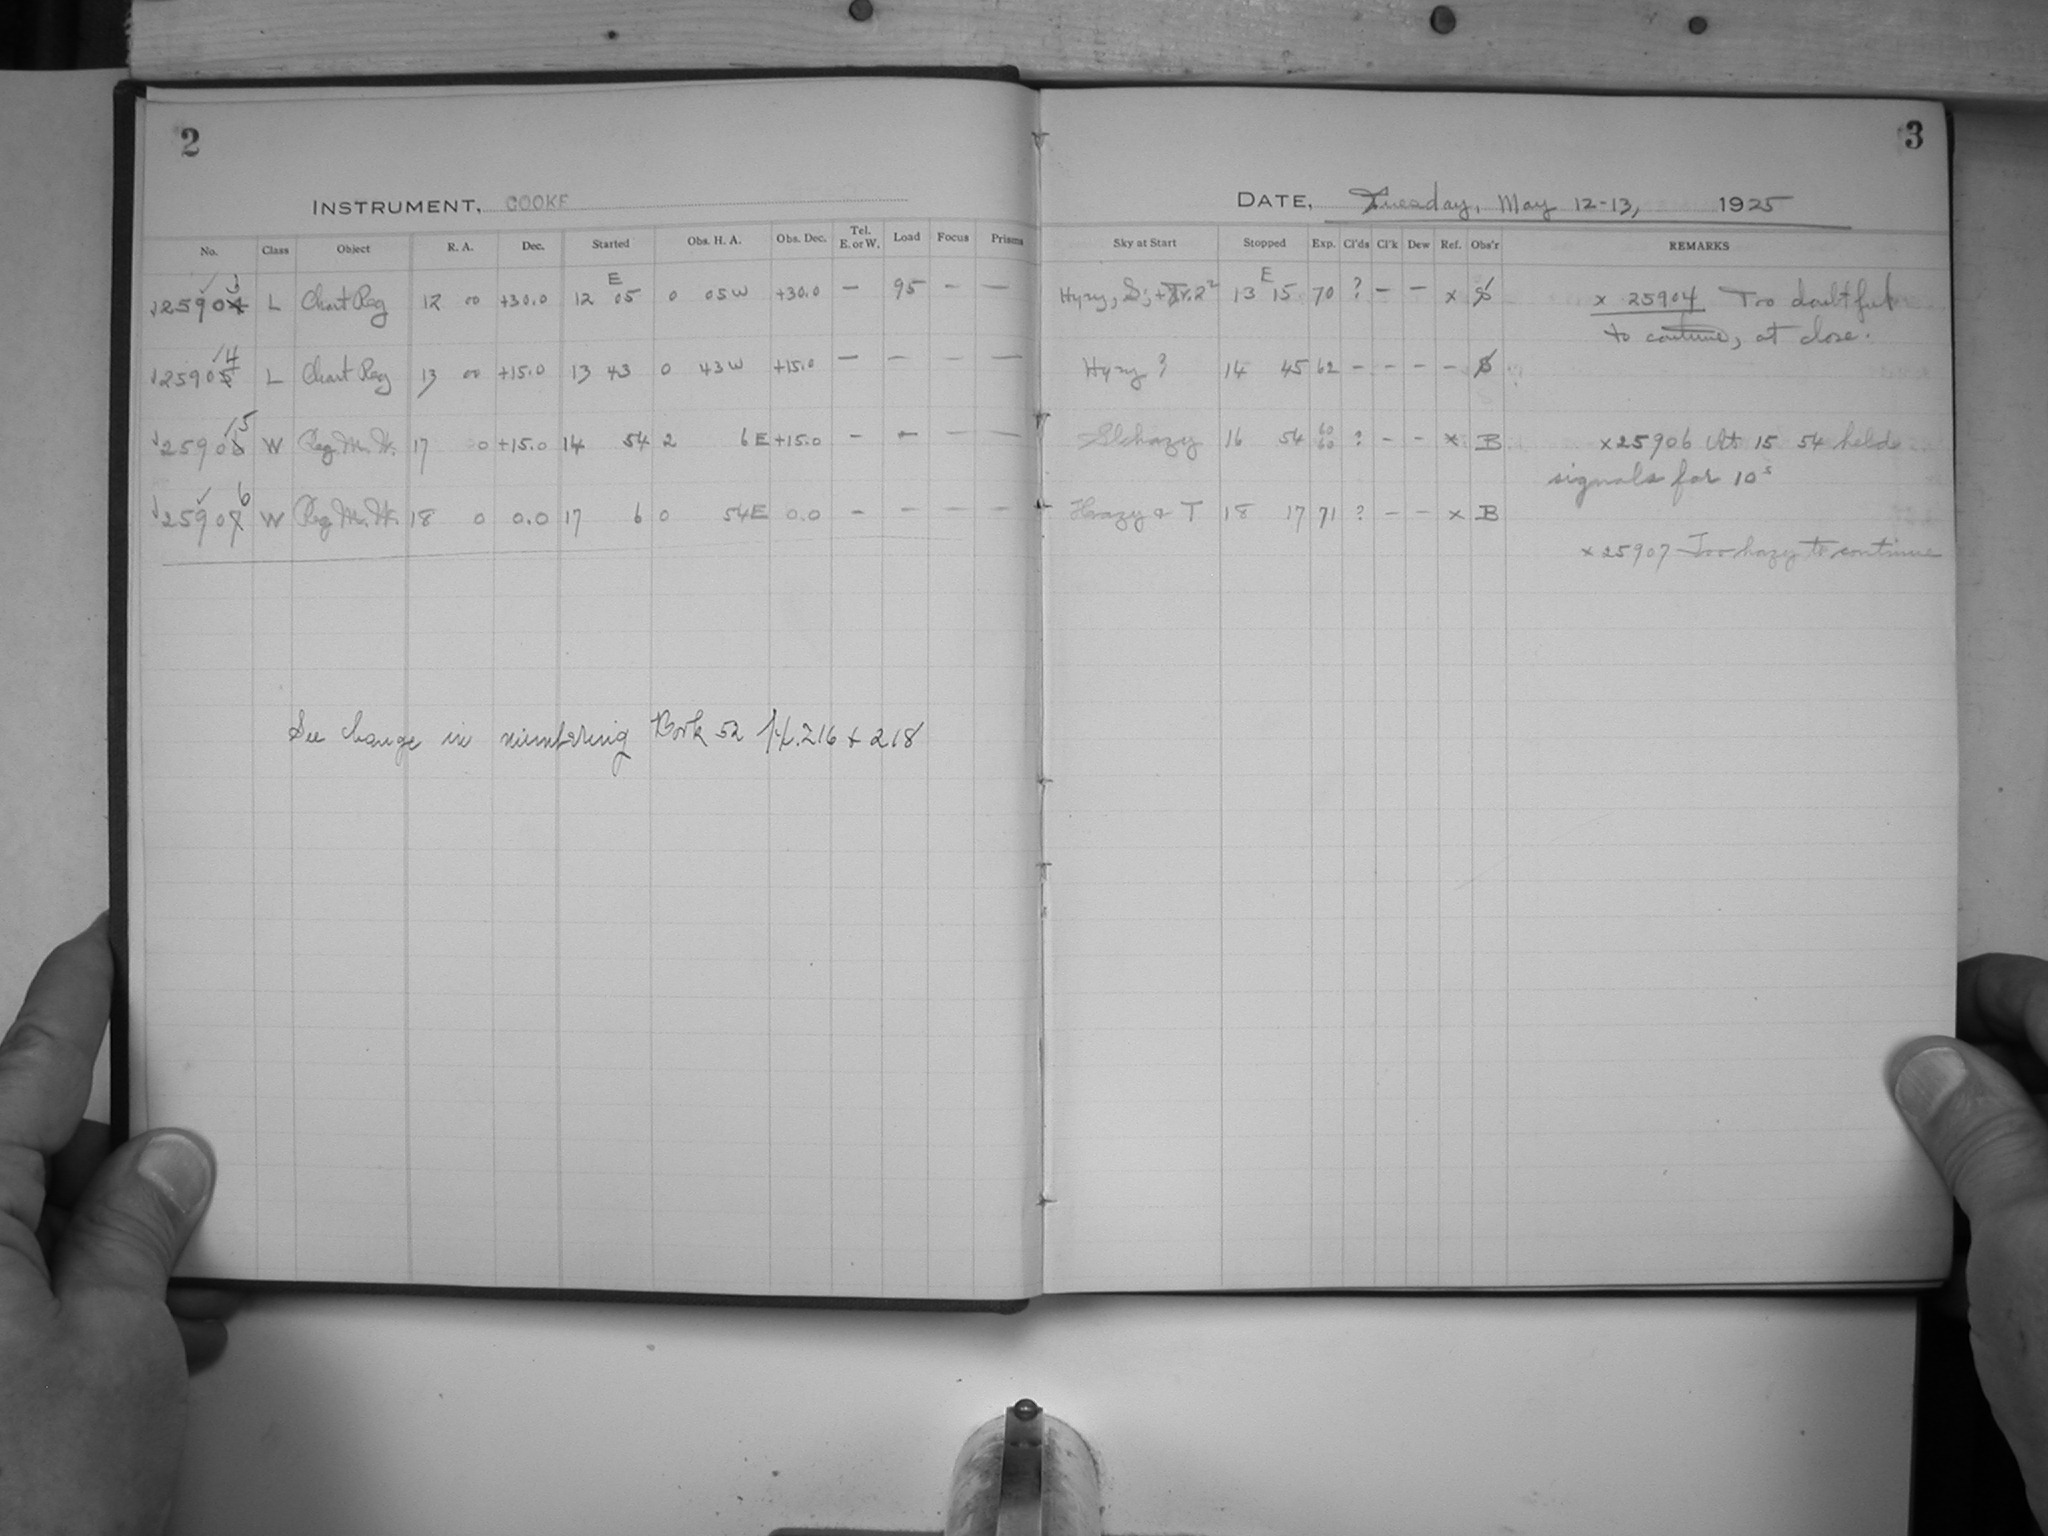 2
INSTRUMENT, COOKE
No. Class Object R. A. Dec. Started Obs. H. A. Obs. Dec. Tel. E. or W. Load Focus Prisms
✓ 3 E
25904 L Chart Reg 12 00 +30.0 12 05 0 05 W +30.0 — 95 — —
✓ 4
25905 L Chart Reg 13 00 +15.0 13 43 0 43 W +15.0 — — — —
✓ 5
25906 W Reg. M. W. 17 0 +15.0 14 54 2 6 E +15.0 — — — —
✓ 6
25907 W Reg. M. W. 18 0 0.0 17 6 0 54 E 0.0 — — — —
See change in numbering Book 52 pp. 216 + 218
3
DATE, Tuesday, May 12-13, 1925
Sky at Start Stopped Exp. Cl'ds Cl'k Dew Ref. Obs'r REMARKS
E
Hyzy, S; + Tr. 2² 13 15 70 ? — — x S x 25904 Too doubtful
to continue, at close.
Hyzy ? 14 45 62 — — — — S
Slehazy 16 54 60 60 ? — — x B x 25906 At 15 54 held
signals for 10ˢ
Hazy + T 18 17 71 ? — — x B
x 25907 Too hazy to continue